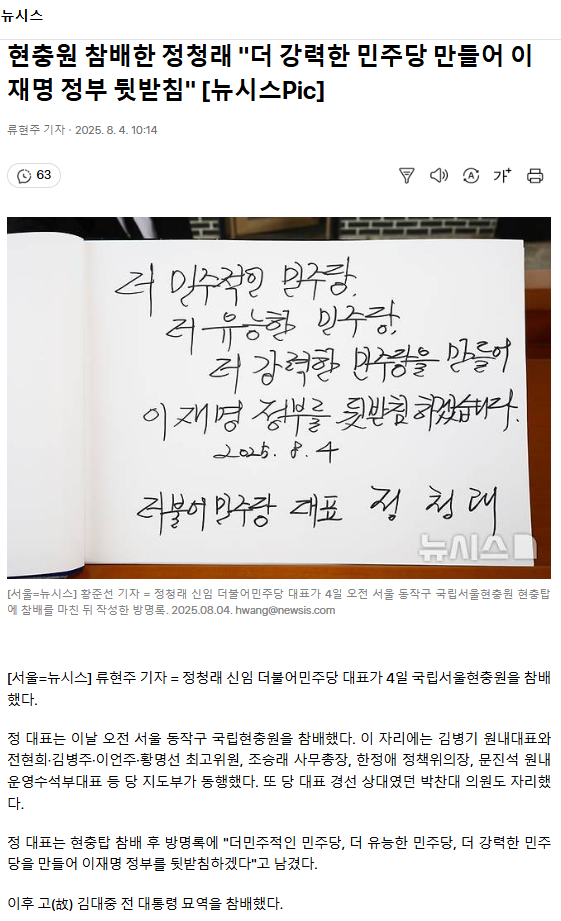 뉴시스
현충원 참배한 정청래 "더 강력한 민주당 만들어 이
재명 정부 뒷받침" [뉴시스Pic]
류현주 기자 · 2025. 8. 4. 10:14
63
가+
더 민주적인 민주당,
더 유능한 민주당,
더 강력한 민주당을 만들어
이재명 정부를 뒷받침하겠습니다.
2025. 8. 4
더불어민주당 대표 정청래
뉴시스
[서울=뉴시스] 황준선 기자 = 정청래 신임 더불어민주당 대표가 4일 오전 서울 동작구 국립서울현충원 현충탑
에 참배를 마친 뒤 작성한 방명록. 2025.08.04. hwang@newsis.com
[서울=뉴시스] 류현주 기자 = 정청래 신임 더불어민주당 대표가 4일 국립서울현충원을 참배
했다.
정 대표는 이날 오전 서울 동작구 국립현충원을 참배했다. 이 자리에는 김병기 원내대표와
전현희·김병주·이언주·황명선 최고위원, 조승래 사무총장, 한정애 정책위의장, 문진석 원내
운영수석부대표 등 당 지도부가 동행했다. 또 당 대표 경선 상대였던 박찬대 의원도 자리했
다.
정 대표는 현충탑 참배 후 방명록에 "더민주적인 민주당, 더 유능한 민주당, 더 강력한 민주
당을 만들어 이재명 정부를 뒷받침하겠다"고 남겼다.
이후 고(故) 김대중 전 대통령 묘역을 참배했다.